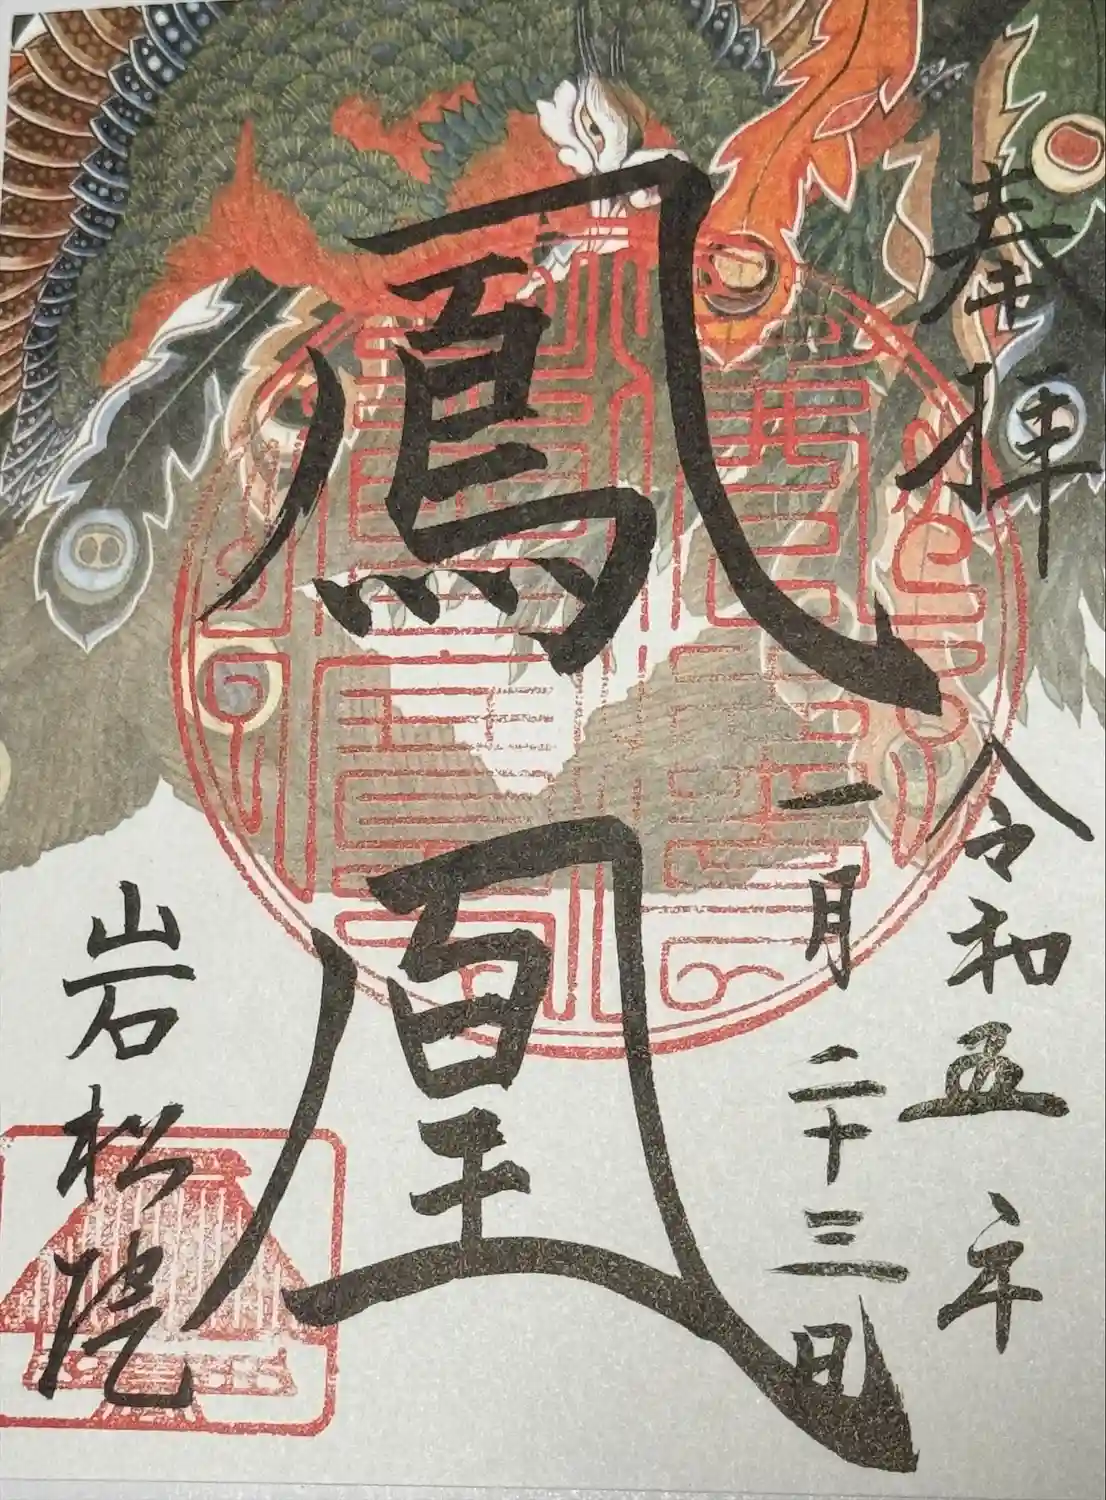 奉拝
令和五年
一月二十三日
鳳凰
岩松院